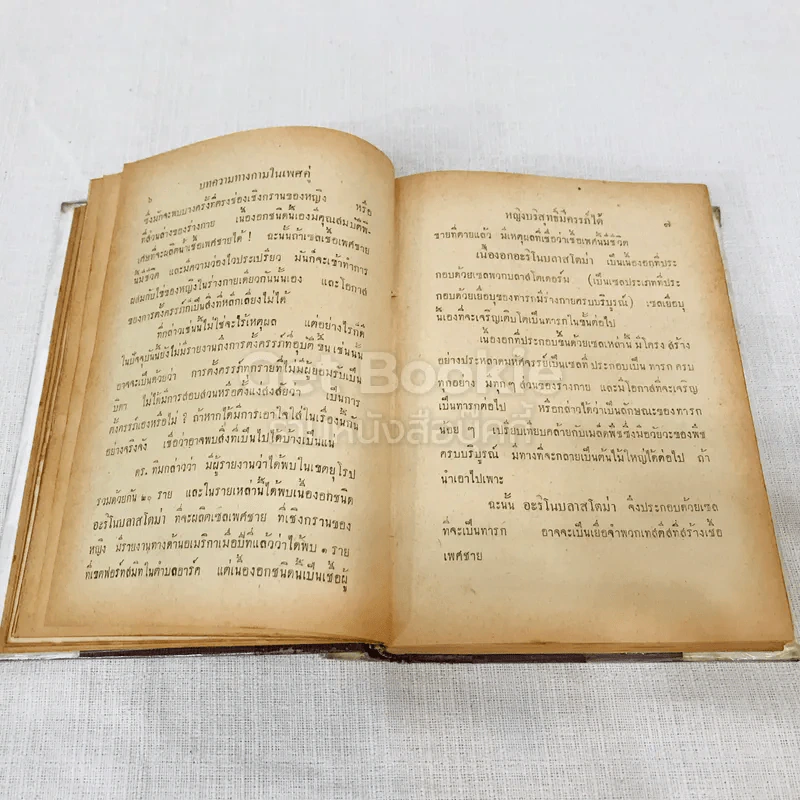 ๖
บทความทางกามในเพศคู่
ซึ่งมักจะพบบางครั้งที่ตรงช่องเชิงกรานของหญิง หรือ
ที่ส่วนล่างของร่างกาย เนื้องอกชนิดนี้เองมีคุณสมบัติพิ-
เศษที่จะผลิตน้ำเชื้อเพศชายได้ ! ฉะนั้นถ้าเซลเชื้อเพศชาย
นี้มีชีวิต และมีความว่องไวประเปรียว มันก็จะเข้าทำการ
ผสมกับไข่ของหญิงในร่างกายเดียวกันนั้นเอง และโอกาส
ของการตั้งครรภ์ก็เป็นสิ่งที่หลีกเลี่ยงไม่ได้
ที่กล่าวเช่นนี้ไม่ใช่จะไร้เหตุผล แต่อย่างไรก็ดี
ในปัจจุบันนี้ยังไม่มีรายงานถึงการตั้งครรภ์ที่อุบัติขึ้นเช่นนั้น
อาจจะเป็นด้วยว่า การตั้งครรภ์ทุกรายที่ไม่มีผู้ยอมรับเป็น
บิดา ไม่ได้มีการสอบสวนหรือตั้งแง่สงสัยว่า เป็นการ
ตั้งครรภ์เองหรือไม่ ? ถ้าหากได้มีการเอาใจใส่ในเรื่องนั้นัน
อย่างจริงจัง เชื่อว่าอาจพบสิ่งที่เป็นไปได้บ้างเป็นแน่
ดร. ทิมกล่าวว่า มีผู้รายงานว่าได้พบในเขตยุโรป
รวมด้วยกัน ๒๐ ราย และในรายเหล่านี้ได้พบเนื้องอกชนิด
อะริโนบลาสโตม่า ที่จะผลิตเซลเพศชาย ที่เชิงกรานของ
หญิง มีรายงานทางด้านอเมริกาเมื่อปีที่แล้วว่าได้พบ ๑ ราย
ที่เขตฟอร์ทสมิทในตำบลอาร์ค แต่เนื้องอกชนิดนี้เป็นเชื้อผู้
หญิงบริสุทธิ์มีครรภ์ได้
๗
ชายที่ตายแล้ว มีเหตุผลที่เชื่อว่าเชื้อเพศนี้มีชีวิต
เนื้องอกอะริโนบลาสโตม่า เป็นเนื้องอกที่ประ
กอบด้วยเซลพวกบลาสโตเดอร์ม (เป็นเซลประเภทที่ประ
กอบด้วยเยื่อบุของทารกมีร่างกายครบบริบูรณ์) เซลเยื่อบุ
นี้เองที่จะเจริญเติบโตเป็นทารกในขั้นต่อไป
เนื้องอกที่ประกอบขึ้นด้วยเซลเหล่านี้ มีโครงสร้าง
อย่างประหลาดมหัศจรรย์เป็นเซลที่ประกอบเป็นทารกครบ
ทุกอย่าง มีทุกๆ ส่วนของร่างกาย และมีโอกาสที่จะเจริญ
เป็นทารกต่อไป หรือกล่าวได้ว่าเป็นลักษณะของทารก
น้อย ๆ เปรียบเทียบคล้ายกับเมล็ดพืชซึ่งมีอวัยวะของพืช
ครบบริบูรณ์ มีทางที่จะกลายเป็นต้นไม้ใหญ่ได้ต่อไป ถ้า
นำเอาไปเพาะ
ฉะนั้น อะริโนบลาสโตม่า จึงประกอบด้วยเซล
ที่จะเป็นทารก อาจจะเป็นเยื่อจำพวกเทสติสที่สร้างเชื้อ
เพศชาย
Get Bookie